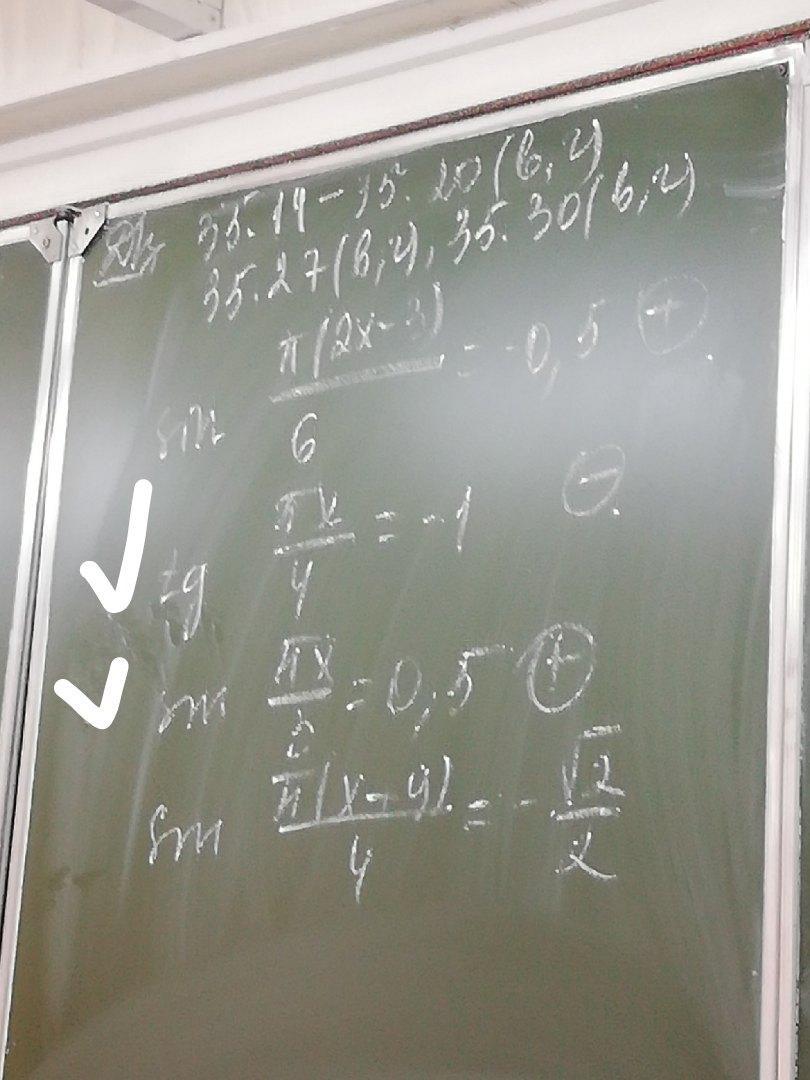 Д/з 35.19-35.20(в,г)
35.27(в,г), 35.30(в,г)
sin π(2x-3)/6 = -0,5 ⊕
tg πx/4 = -1 ⊖
sin πx/2 = 0,5 ⊕
sin π(x-4)/4 = -√2/2